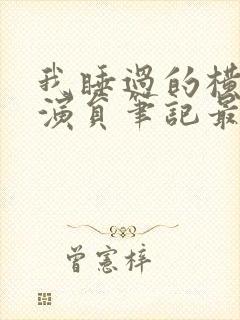 我睡過的橫
演員筆記最
曾憲梓